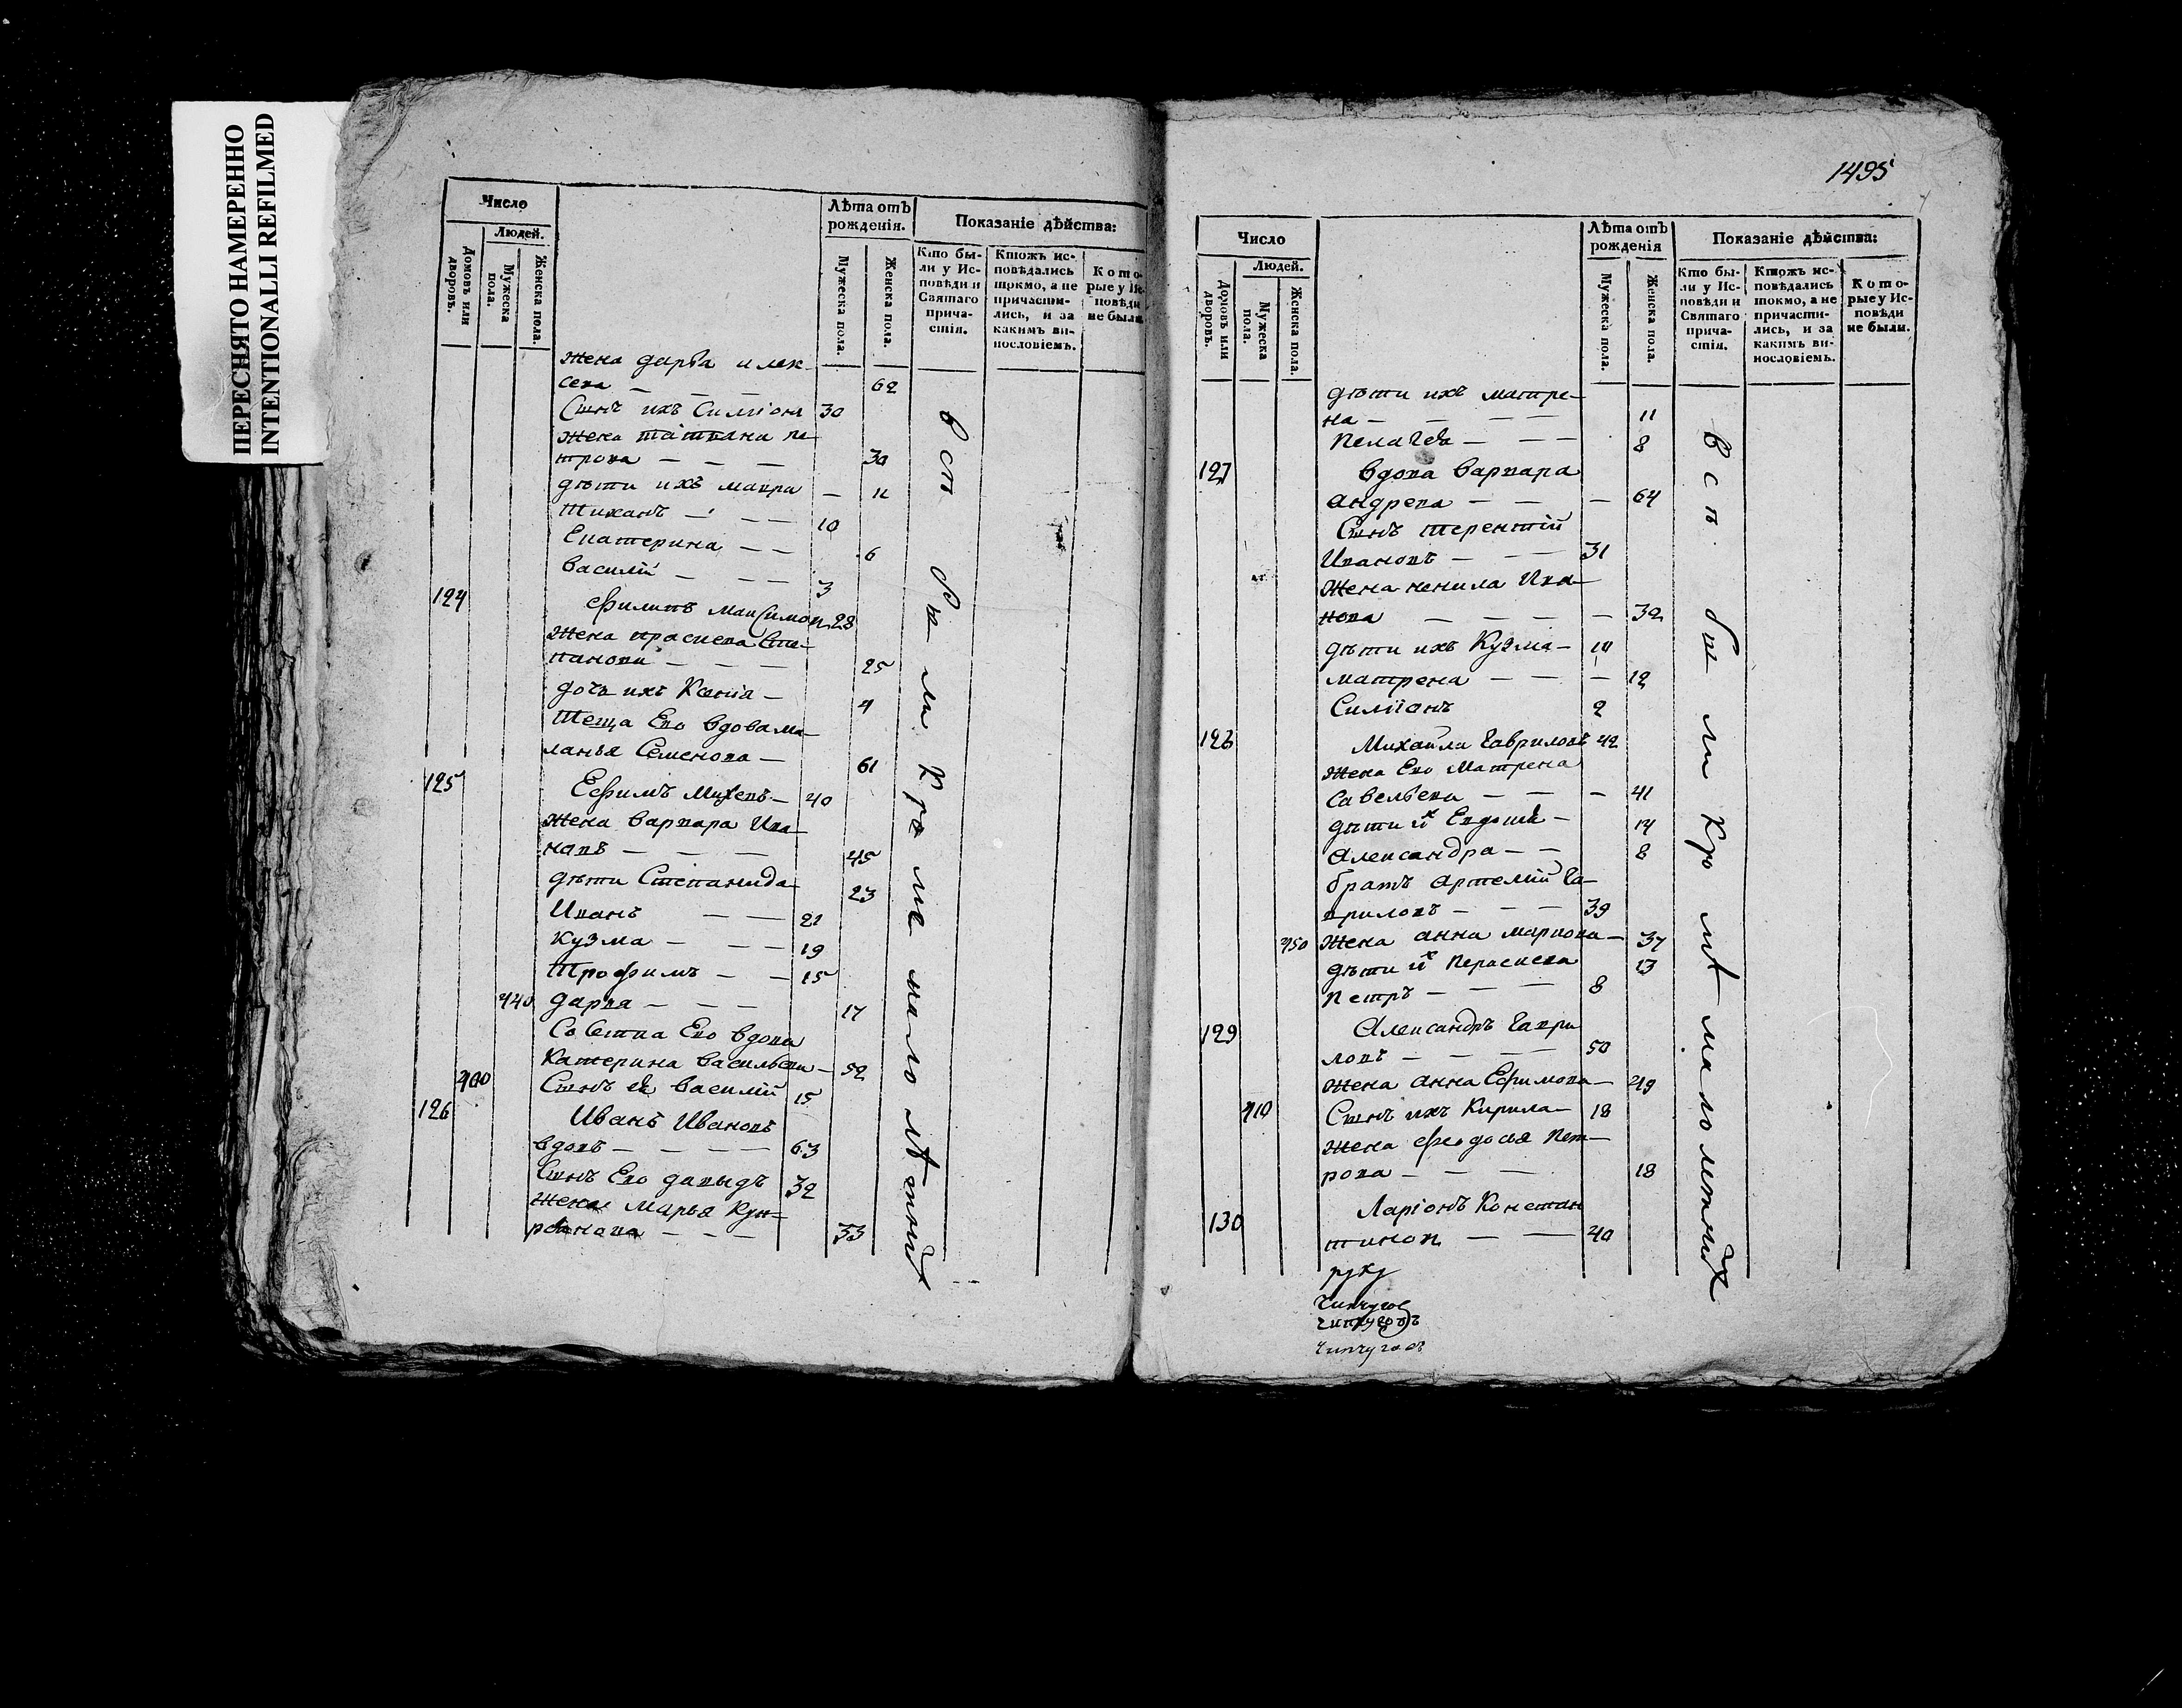 ПЕРЕСНЯТО НАМЕРЕННО
INTENTIONALLI REFILMED
Число
Людей.
Домовъ или дворовъ.
Мужеска пола.
Женска пола.
Лѣта отъ рожденія.
Мужеска пола.
Женска пола.
Показаніе дѣйства:
Кто бы-
ли у Ис-
повѣди и
Святаго
прича-
стія.
Ктожъ ис-
повѣдались
токмо, а не
причасти-
лись, и за
какимъ ви-
нословіемъ.
Кото-
рые у Ис-
повѣди
не были.
жена дарья алек
сева — 62
Сынъ ихъ Симіонъ 30
жена татіана пе
трова — — — 30
дѣти ихъ мавра — 11
Тиханъ — — — 10
Екатерина — — 6
Василій — — — 3
124 Филипъ Максимов 28
Жена праскева Сте-
панова — — — 25
дочь ихъ Ксенія — 4
Теща Ево вдова ма-
ланья Семенова — 61
125 Ефимъ Михевъ — 40
Жена варвара Ива-
новъ — — — 45
дѣти Степанида 23
Иванъ — — 21
Кузма — — — 19
Трофимъ — — 15
440 дарья — — — 17
Ево вдова
Катерина Васильева — 52
400 Сынъ ея Василий 15
126 Иванъ Ивановъ
вдовъ — — — — 63
Сынъ Ево давыдъ 32
жена Марья Кун-
33
всѣ были кроме малолѣтнихъ
1495
Число
Людей.
Домовъ или дворовъ.
Мужеска пола.
Женска пола.
Лѣта отъ рожденія
Мужеска пола.
Женска пола.
Показаніе дѣйства:
Кто бы-
ли у Ис-
повѣди и
Святаго
прича-
стія.
Ктожъ ис-
повѣдались
токмо, а не
причасти-
лись, и за
какимъ ви-
нословіемъ.
Кото-
рые у Ис-
повѣди
не были.
дѣти ихъ матре-
на — — — — 11
Пелагея — — — 8
127 Вдова варвара
Андрева — — — 64
Сынъ терентій
Ивановъ — — — 31
Жена ненила Ива-
нова — — — — 32
дѣти ихъ Кузма — 14
матрена — — — — 12
Симіонъ 2
128 Михайла Гавриловъ 42
Жена Ево Матрена
Савельева — — — 41
дѣти их Евдокия — 14
Александра — — 8
братъ Артемій Га-
вриловъ — — — 39
450 Жена анна маркова — 37
дѣти их Параскева 13
Петръ — — — 8
129 Александръ Гаври
ловъ — — — 50
жена анна Ефимова — 49
410 Сынъ ихъ Кирила — 18
жена Феодосья Пет-
рова — — — 18
130 Ларіонъ Констан
тинов — — 40
всѣ были кромѣ малолетнихъ
руку